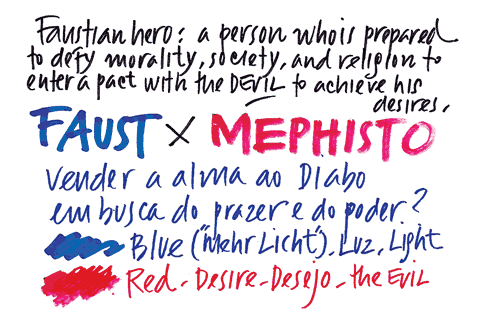 Faustian hero: a person who is prepared
to defy morality, society, and religion to
enter a pact with the DEVIL to achieve his
desires.
FAUST x MEPHISTO
vender a alma ao Diabo
em busca do prazer e do poder?
Blue ("Mehr Licht"). Luz, Light
Red - Desire - Desejo - the Evil